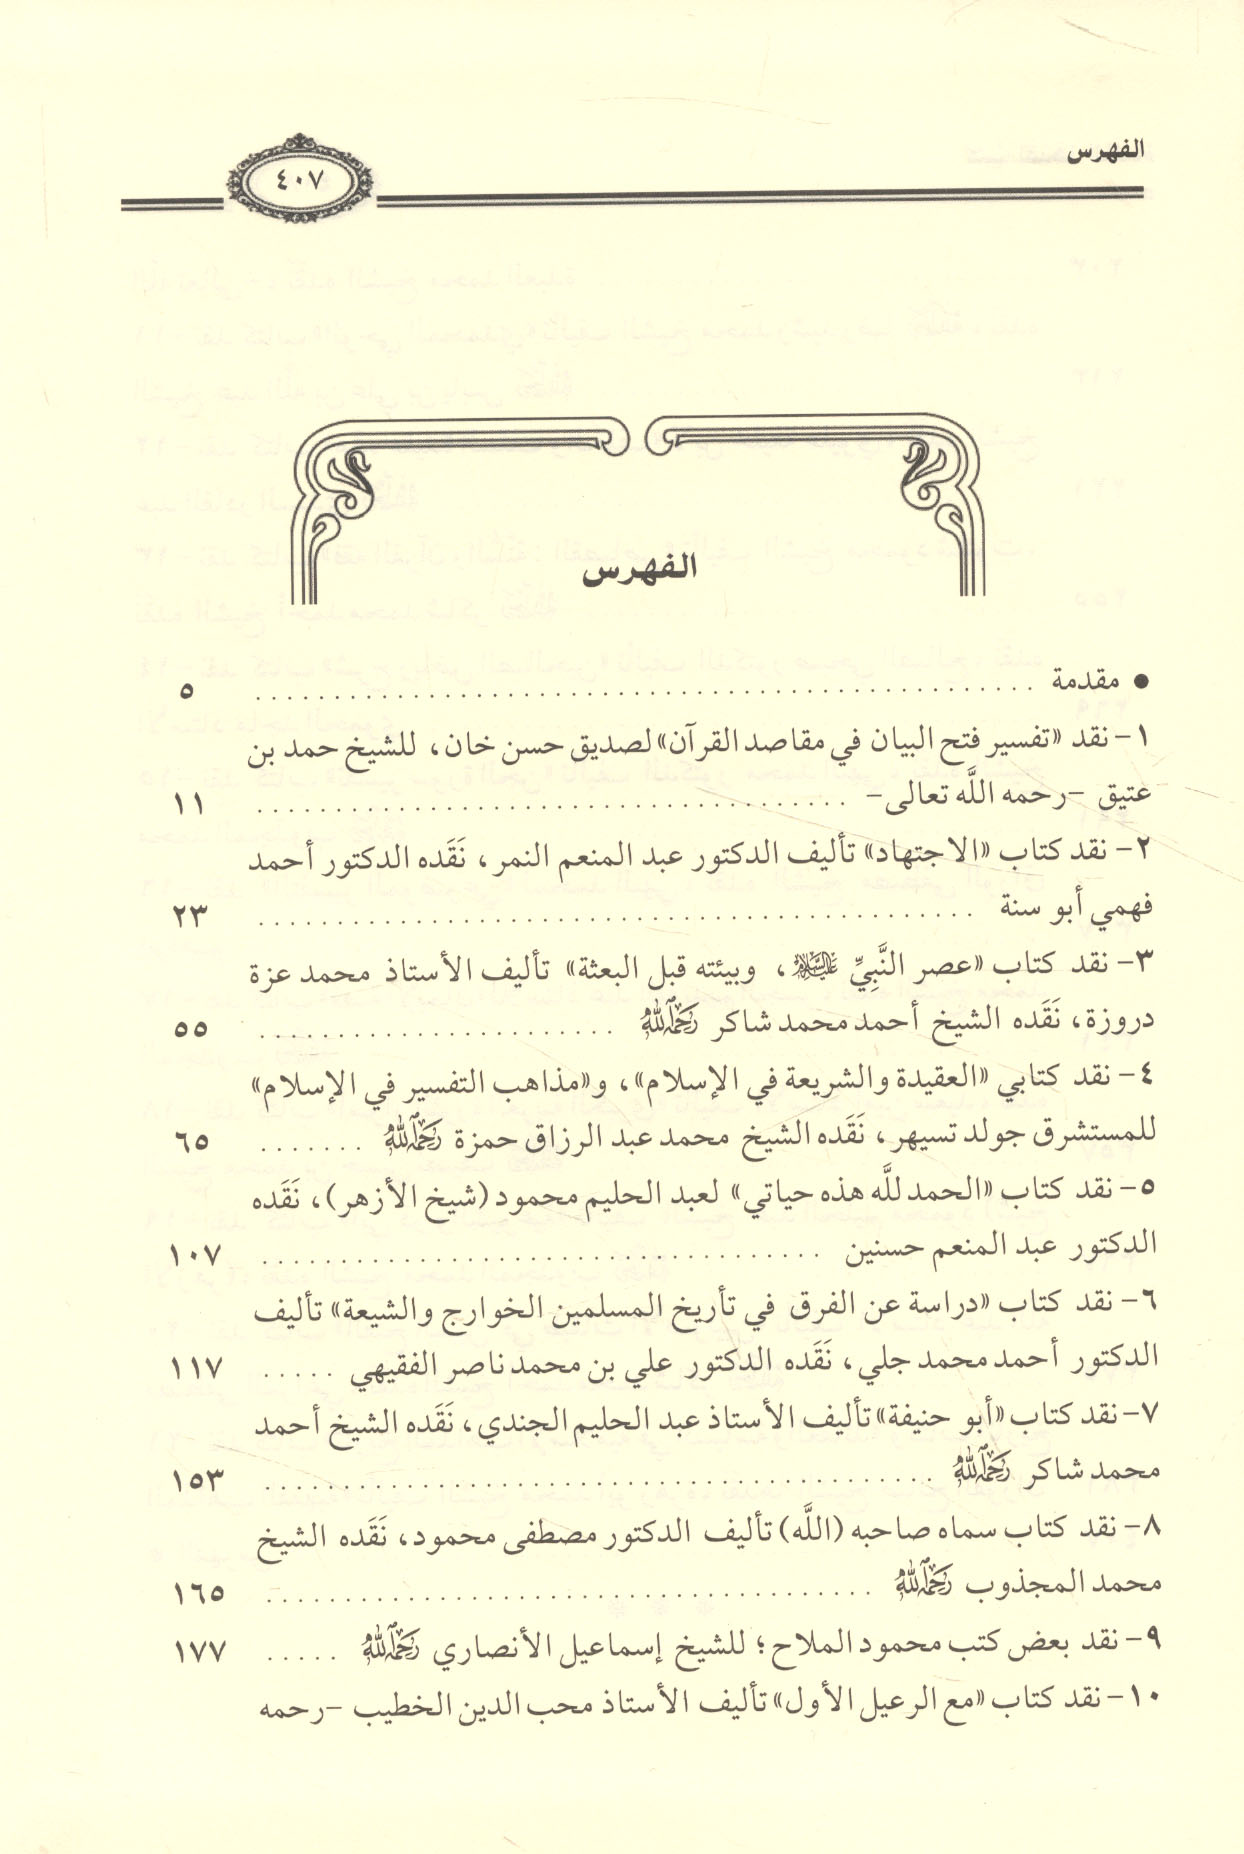 الفهرس
٤٠٧
الفهرس
● مقدمة ................................................ ٥
١- نقد «تفسير فتح البيان في مقاصد القرآن» لصديق حسن خان، للشيخ حمد بن
عتيق -رحمه اللَّه تعالى- ..................................... ١١
٢- نقد كتاب «الاجتهاد» تأليف الدكتور عبد المنعم النمر، نَقَده الدكتور أحمد
فهمي أبو سنة ............................................. ٢٣
٣- نقد كتاب «عصر النَّبِيِّ ﷺ، وبيئته قبل البعثة» تأليف الأستاذ محمد عزة
دروزة، نَقَده الشيخ أحمد محمد شاكر رَحِمَهُ اللَّهُ ...................... ٥٥
٤- نقد كتابي «العقيدة والشريعة في الإسلام»، و«مذاهب التفسير في الإسلام»
للمستشرق جولد تسيهر، نَقَده الشيخ محمد عبد الرزاق حمزة رَحِمَهُ اللَّهُ ....... ٦٥
٥- نقد كتاب «الحمد للَّه هذه حياتي» لعبد الحليم محمود (شيخ الأزهر)، نَقَده
الدكتور عبد المنعم حسنين ................................... ١٠٧
٦- نقد كتاب «دراسة عن الفرق في تأريخ المسلمين الخوارج والشيعة» تأليف
الدكتور أحمد محمد جلي، نَقَده الدكتور علي بن محمد ناصر الفقيهي ..... ١١٧
٧- نقد كتاب «أبو حنيفة» تأليف الأستاذ عبد الحليم الجندي، نَقَده الشيخ أحمد
محمد شاكر رَحِمَهُ اللَّهُ .......................................... ١٥٣
٨- نقد كتاب سماه صاحبه (اللَّه) تأليف الدكتور مصطفى محمود، نَقَده الشيخ
محمد المجذوب رَحِمَهُ اللَّهُ ...................................... ١٦٥
٩- نقد بعض كتب محمود الملاح؛ للشيخ إسماعيل الأنصاري رَحِمَهُ اللَّهُ ..... ١٧٧
١٠- نقد كتاب «مع الرعيل الأول» تأليف الأستاذ محب الدين الخطيب -رحمه